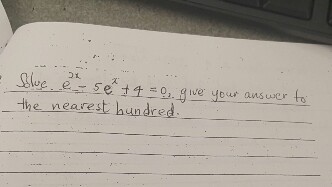 Solve. e^{2x} - 5e^{x} + 4 = 0, give your answer to
the nearest hundred.